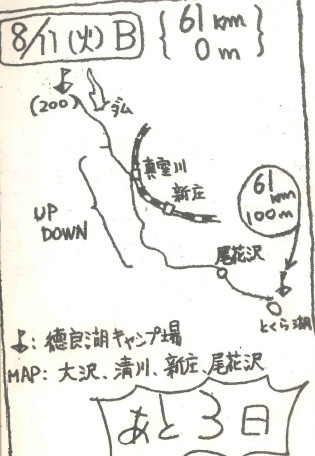 8/11(火) B
61 km
0 m
(200)
ダム
真室川
新庄
61
km
100m
UP
DOWN
尾花沢
とくら湖
:徳良湖キャンプ場
MAP: 大沢、清川、新庄、尾花沢
あと3日